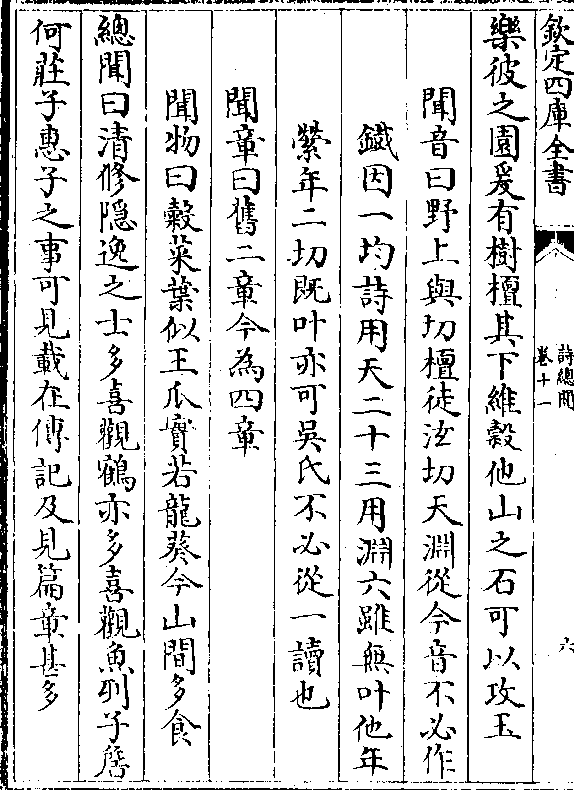 欽定四庫全書
詩總聞
卷十一
六
樂彼之園爰有樹檀其下維榖他山之石可以攻玉
聞音曰野上與切檀徒沇切天淵從今音不必作
鐵因一均詩用天二十三用淵六雖無叶他年
縈年二切既叶亦可吳氏不必從一讀也
聞章曰舊二章今為四章
聞物曰榖菜葉似王瓜實若龍葵今山間多食
總聞曰清修隱逸之士多喜觀鶴亦多喜觀魚列子詹
何莊子惠子之事可見載在傳記及見篇章甚多